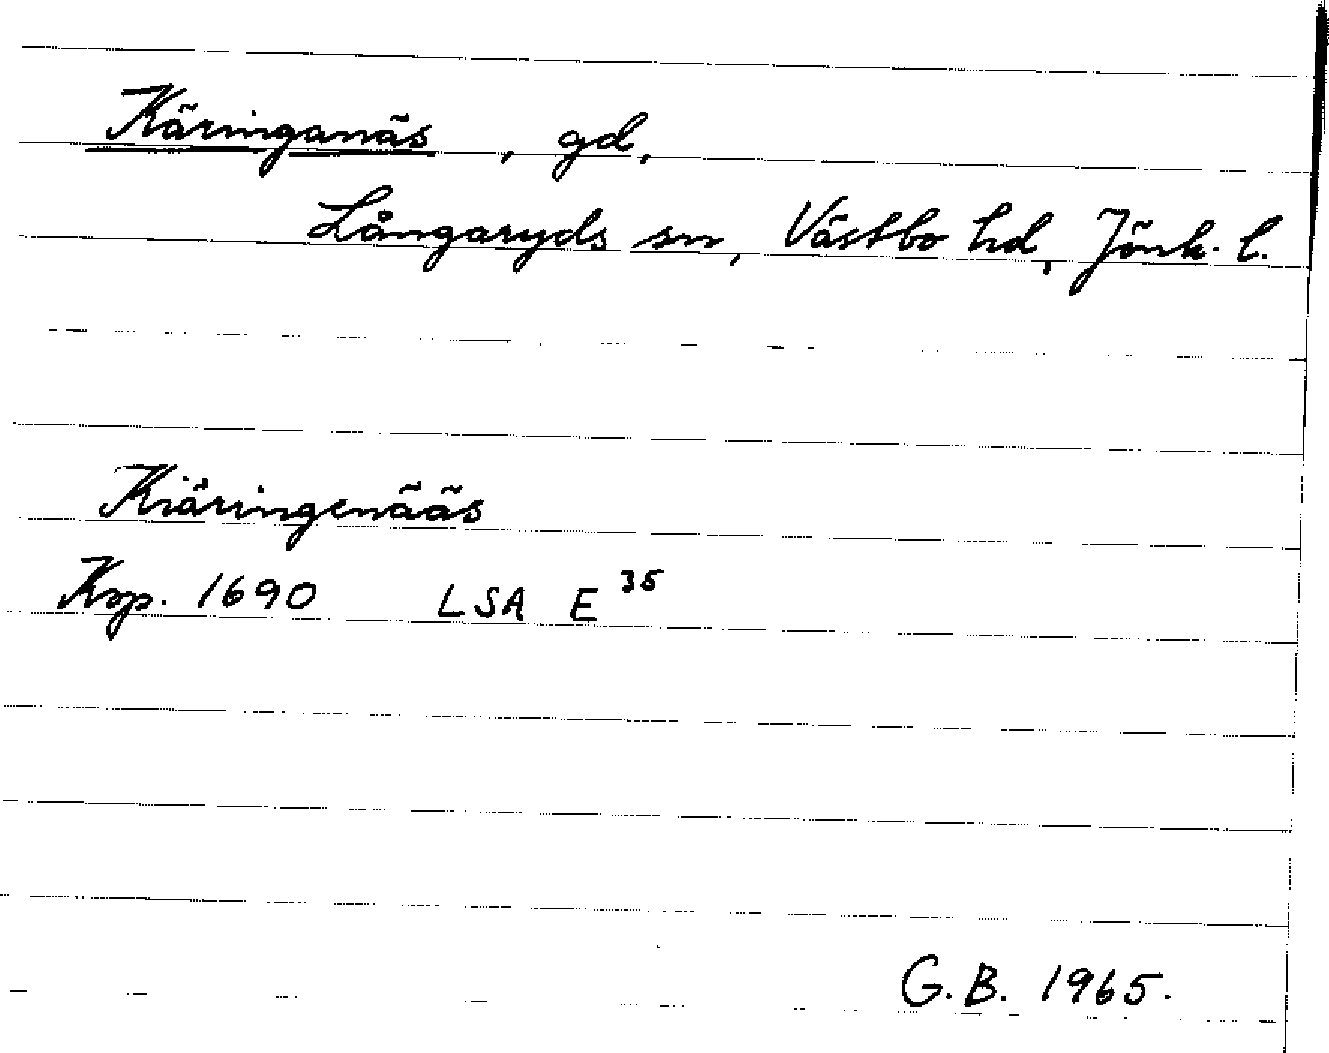 Käringanäs, gd,
Långaryds sn, Västbo hd, Jönk. l.
Kiäringenääs
Ksp. 1690 LSA E 35
G.B. 1965.